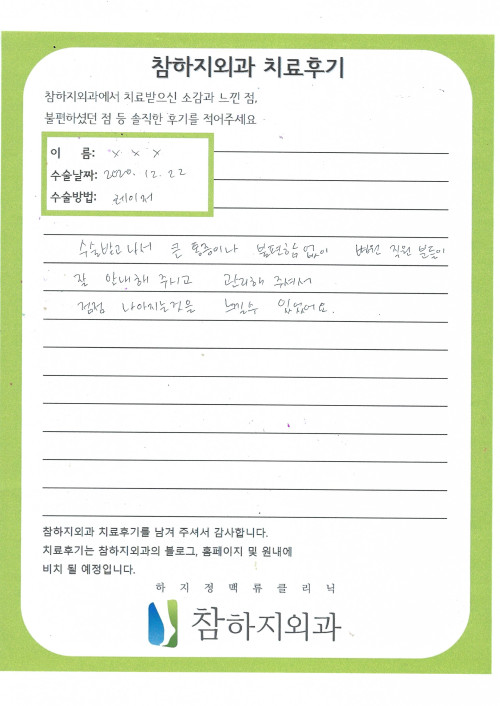 참하지외과 치료후기
참하지외과에서 치료받으신 소감과 느낀 점,
불편하셨던 점 등 솔직한 후기를 적어주세요
이 름: x x x
수술날짜: 2020. 12. 22
수술방법: 레이저
수술받고 나서 큰 통증이나 불편함 없이 병원 직원 분들이
잘 안내해 주니고 관리해 주셔서
점점 나아지는것을 느낄수 있었어요.
참하지외과 치료후기를 남겨 주셔서 감사합니다.
치료후기는 참하지외과의 블로그, 홈페이지 및 원내에
비치 될 예정입니다.
하지정맥류클리닉
참하지외과